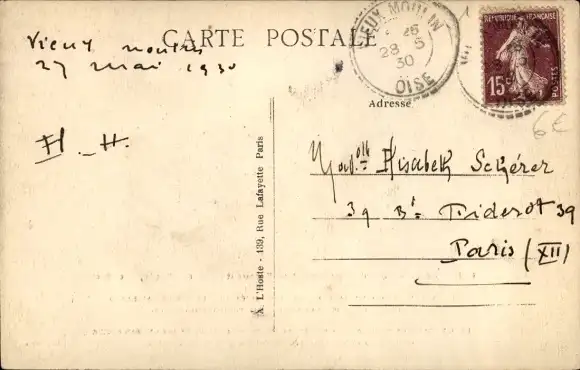 CARTE POSTALE
Vieux moulin
27 mai 1930
H.-H.
VIEUX MOULIN
28 - 5
30
OISE
REPUBLIQUE FRANÇAISE
15c
POSTES
6€
Adresse
Mad.elle Elisabeth Schérer
39 Bd Diderot 39
Paris (XII)
A. L'Hoste - 139, Rue Lafayette Paris